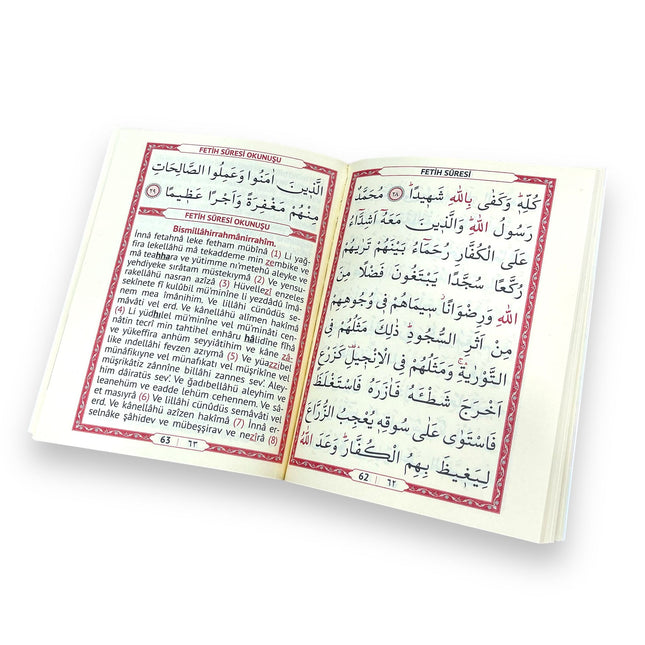 FETİH SÛRESİ
كُلِّهِ وَكَفٰى بِاللّٰهِ شَهٖيدًا ﴿٢٨﴾ مُحَمَّدٌ
رَسُولُ اللّٰهِ وَالَّذٖينَ مَعَهُٓ اَشِدَّٓاءُ
عَلَى الْكُفَّارِ رُحَمَٓاءُ بَيْنَهُمْ تَرٰيهُمْ
رُكَّعًا سُجَّدًا يَبْتَغُونَ فَضْلًا مِنَ
اللّٰهِ وَرِضْوَانًا سٖيمَاهُمْ فٖي وُجُوهِهِمْ
مِنْ اَثَرِ السُّجُودِ ذٰلِكَ مَثَلُهُمْ فِي
التَّوْرٰيةِ وَمَثَلُهُمْ فِي الْاِنْجٖيلِ كَزَرْعٍ
اَخْرَجَ شَطْـَٔهُ فَاٰزَرَهُ فَاسْتَغْلَظَ
فَاسْتَوٰى عَلٰى سُوقِهٖ يُعْجِبُ الزُّرَّاعَ
لِيَغٖيظَ بِهِمُ الْكُفَّارَ وَعَدَ اللّٰهُ
62 | ٦٢
FETİH SÛRESİ OKUNUŞU
الَّذٖينَ اٰمَنُوا وَعَمِلُوا الصَّالِحَاتِ
مِنْهُمْ مَغْفِرَةً وَاَجْرًا عَظٖيمًا ﴿٢٩﴾
FETİH SÛRESİ OKUNUŞU
Bismillâhirrahmânirrahîm.
İnnâ fetahnâ leke fetham mübînâ (1) Li yağ-
fira lekellâhü mâ tekaddeme min zembike ve
mâ teahhara ve yütimme ni'metehû aleyke ve
yehdiyeke sırâtam müstekıymâ (2) Ve yensu-
rakellâhü nasran azîzâ (3) Hüvellezî enzeles
sekînete fî kulûbil mü'minîne li yezdâdû îmâ-
nem mea îmânihim. Ve lillâhi cünûdüs se-
mâvâti vel erd. Ve kânellâhü alîmen hakîmâ
(4) Li yüdhılel mü'minîne vel mü'minâti cen-
nâtin tecrî min tahtihel enhâru hâlidîne fîhâ
ve yükeffira anhüm seyyiâtihim ve kâne zâ-
like ındellâhi fevzen azıymâ (5) Ve yüazzibel
münâfikıyne vel münafikati vel müşrikîne vel
müşrikâtiz zânnîne billâhi zannes sev'. Aley-
him dâiratüs sev'. Ve ğadıbellâhü aleyhim ve
leanehüm ve eadde lehüm cehennem. Ve sâ-
et masıyrâ (6) Ve lillâhi cünûdüs semâvâti vel
erd. Ve kânellâhü azîzen hakîmâ (7) İnnâ er-
selnâke şâhidev ve mübeşşirav ve nezîrâ (8)
63 | ٦٣